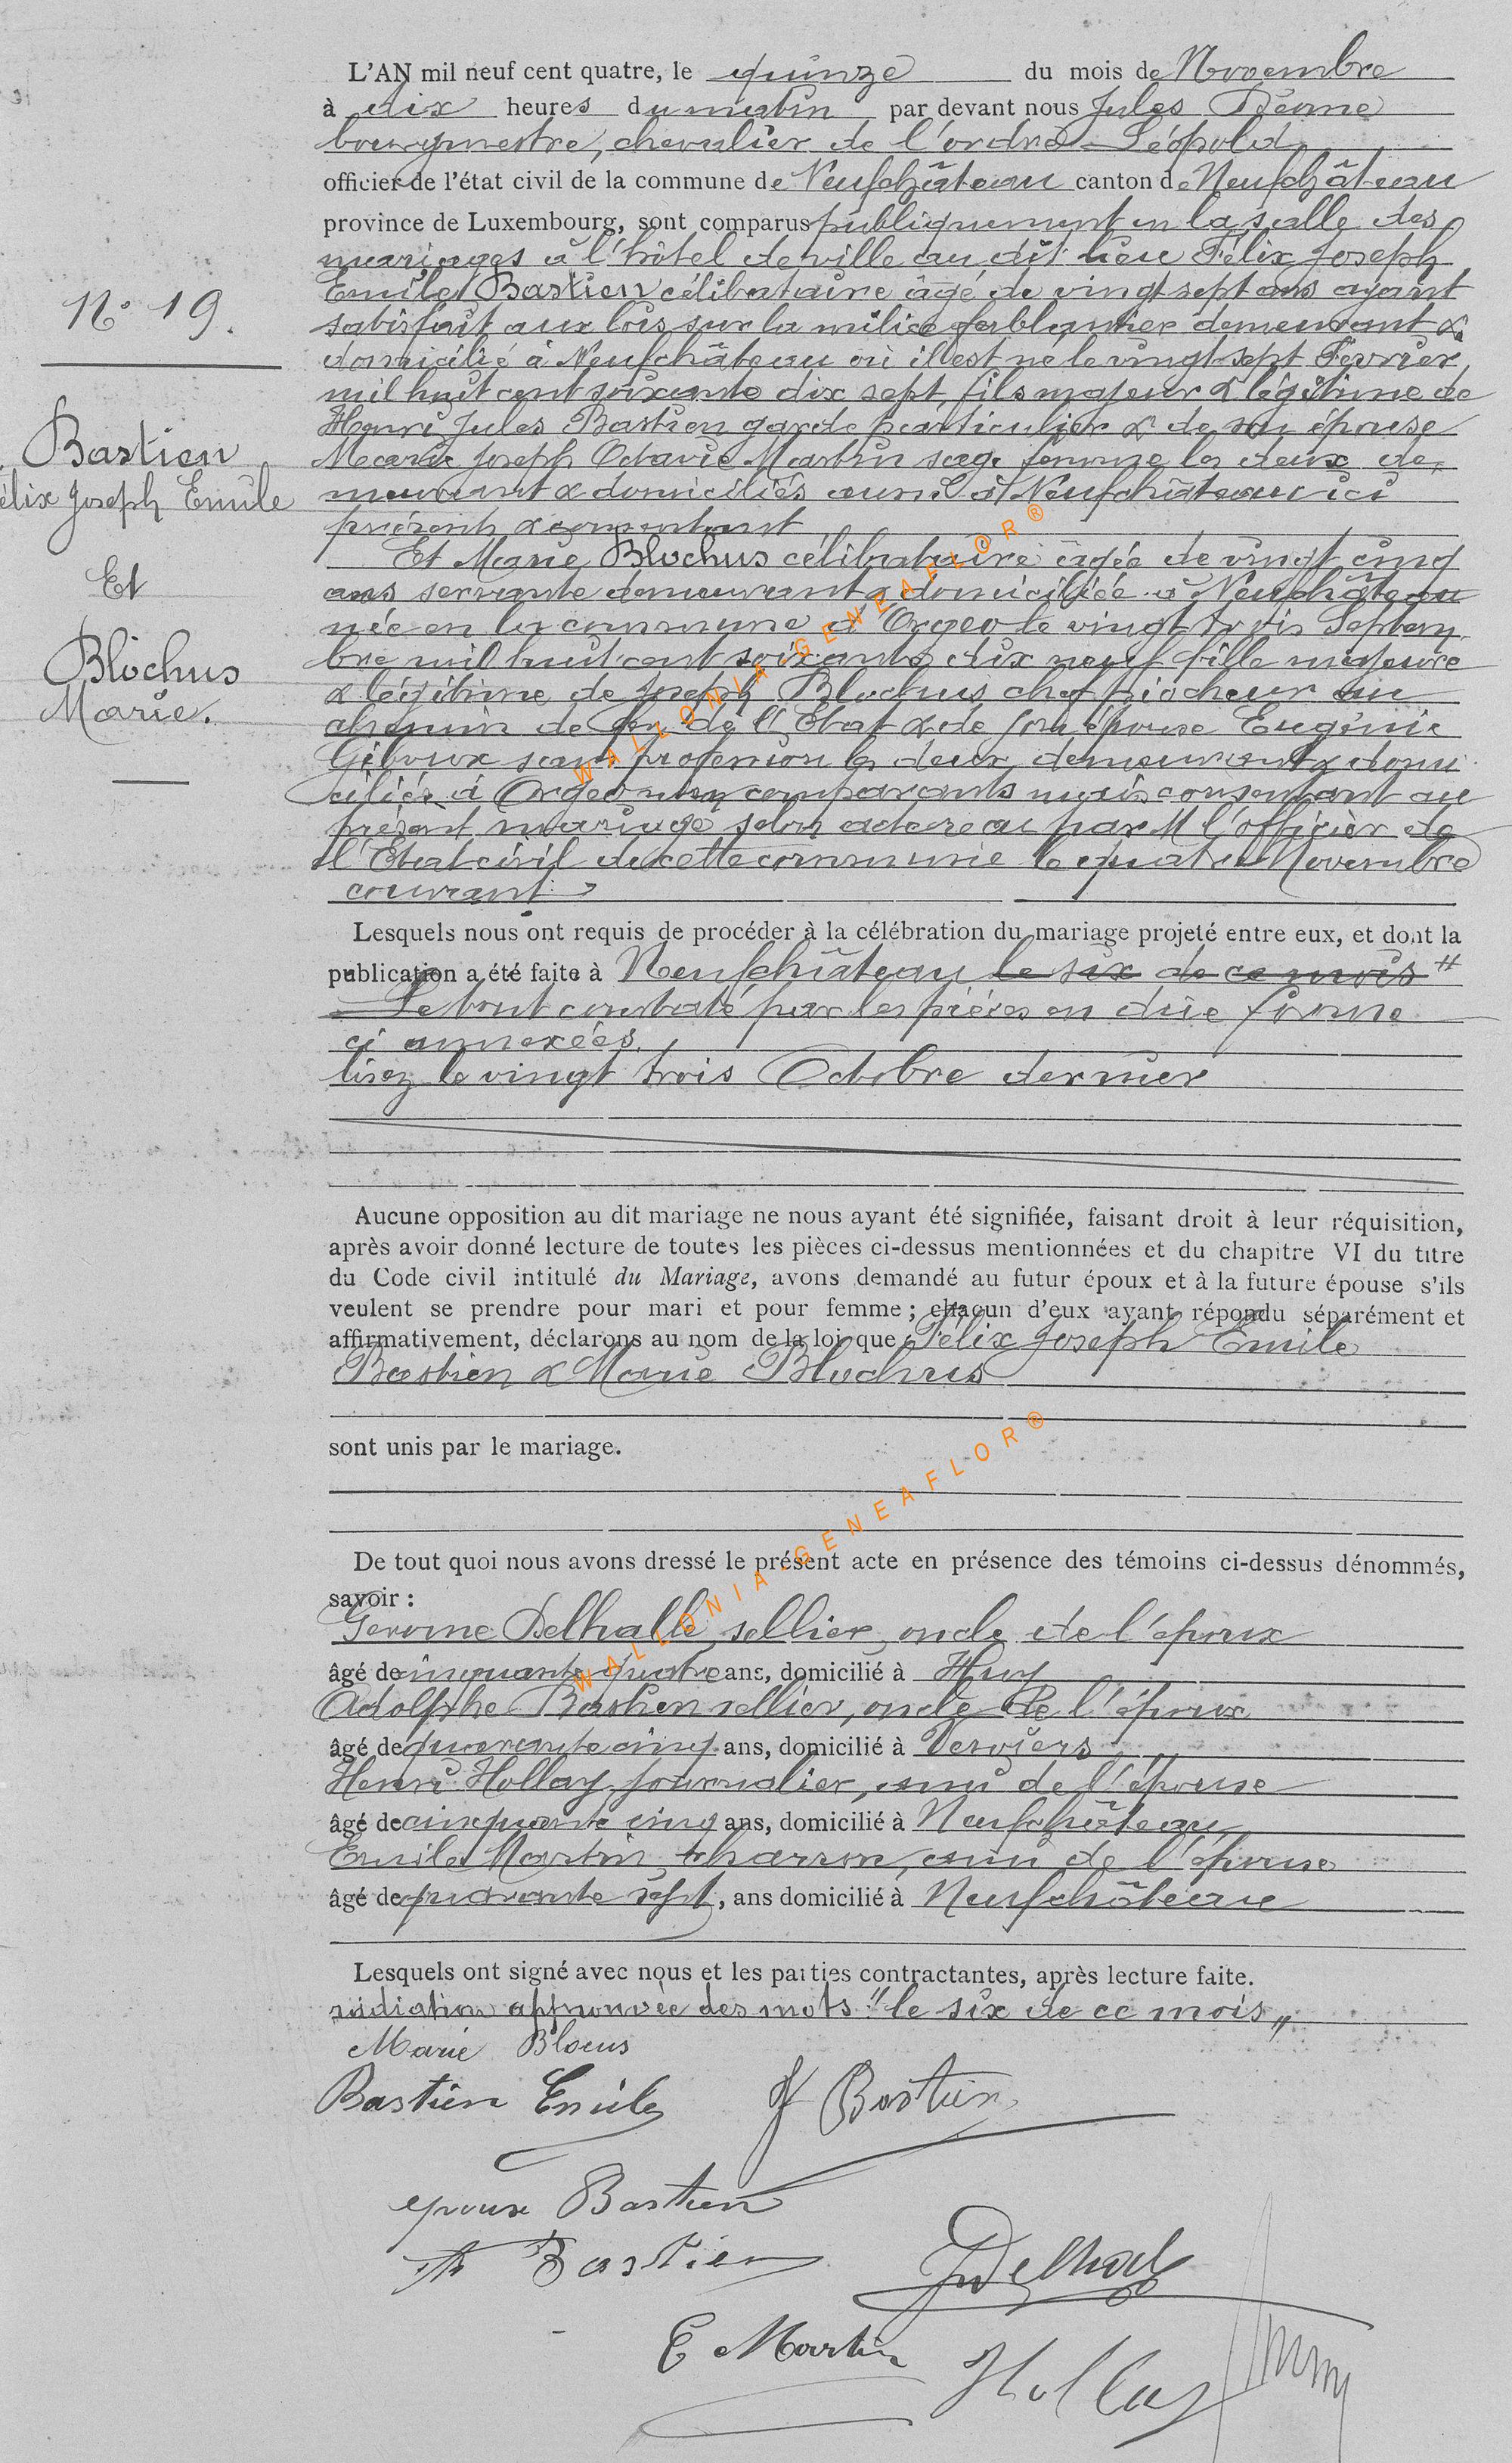 L'AN mil neuf cent quatre, le quinze du mois de Novembre
à dix heures du matin par devant nous Jules
bourgmestre, chevalier de l'ordre Léopold
officier de l'état civil de la commune de Neufchâteau canton de Neufchâteau
province de Luxembourg, sont comparus publiquement en la salle des
mariages à l'hôtel de ville au dit lieu Félix Joseph
Emile Bastien célibataire âgé de vingt sept ans ayant
satisfait aux lois sur la milice ferblantier demeurant &
domicilié à Neufchâteau où il est né le vingt sept Février
mil huit cent soixante dix sept, fils majeur & légitime de
Henri Jules Bastien garde particulier & de son épouse
Marie Joseph Octavie Martin sage femme les deux de
meurant & domiciliés aussi à Neufchâteau ici
présents & consentant
N° 19.
Bastien
élix Joseph Emile
Et
Blochus
Marie.
Et Marie Blochus célibataire âgée de vingt cinq
ans servante demeurant & domiciliée à Neufchâteau
née en la commune d'Orgeo le vingt trois Septem
bre mil huit cent soixante dix neuf fille majeure
& légitime de Joseph Blochus chef piocheur au
chemin de fer de l'Etat & de son épouse Eugénie
Giboux sans profession les deux demeurant & domi
ciliés à Orgeo non comparants mais consentant au
présent mariage selon acte reçu par M l'officier de
l'Etat civil de cette commune le quatre Novembre
courant
Lesquels nous ont requis de procéder à la célébration du mariage projeté entre eux, et dont la
publication a été faite à Neufchâteau le six de ce mois #
Le tout constaté par les pièces en due forme
ci annexées.
lisez le vingt trois Octobre dernier
Aucune opposition au dit mariage ne nous ayant été signifiée, faisant droit à leur réquisition,
après avoir donné lecture de toutes les pièces ci-dessus mentionnées et du chapitre VI du titre
du Code civil intitulé du Mariage, avons demandé au futur époux et à la future épouse s'ils
veulent se prendre pour mari et pour femme ; chacun d'eux ayant répondu séparément et
affirmativement, déclarons au nom de la loi que Félix Joseph Emile
Bastien & Marie Blochus
sont unis par le mariage.
De tout quoi nous avons dressé le présent acte en présence des témoins ci-dessus dénommés,
savoir :
Gerome Delhalle sellier, oncle de l'époux
âgé de cinquante quatre ans, domicilié à Huy
Adolphe Bastien sellier, oncle de l'époux
âgé de quarante cinq ans, domicilié à Verviers
Henri Hollay journalier, ami de l'épouse
âgé de cinquante cinq ans, domicilié à Neufchâteau
Emile Martin charron, ami de l'épouse
âgé de quarante sept, ans domicilié à Neufchâteau
Lesquels ont signé avec nous et les parties contractantes, après lecture faite.
radiation approuvée des mots "le six de ce mois"
Marie Blocus
Bastien Emile Bastien
epouse Bastien
Bastien Delhal
E Martin Hollay
WALLONIA-GENEAFLOR®
WALLONIA-GENEAFLOR®